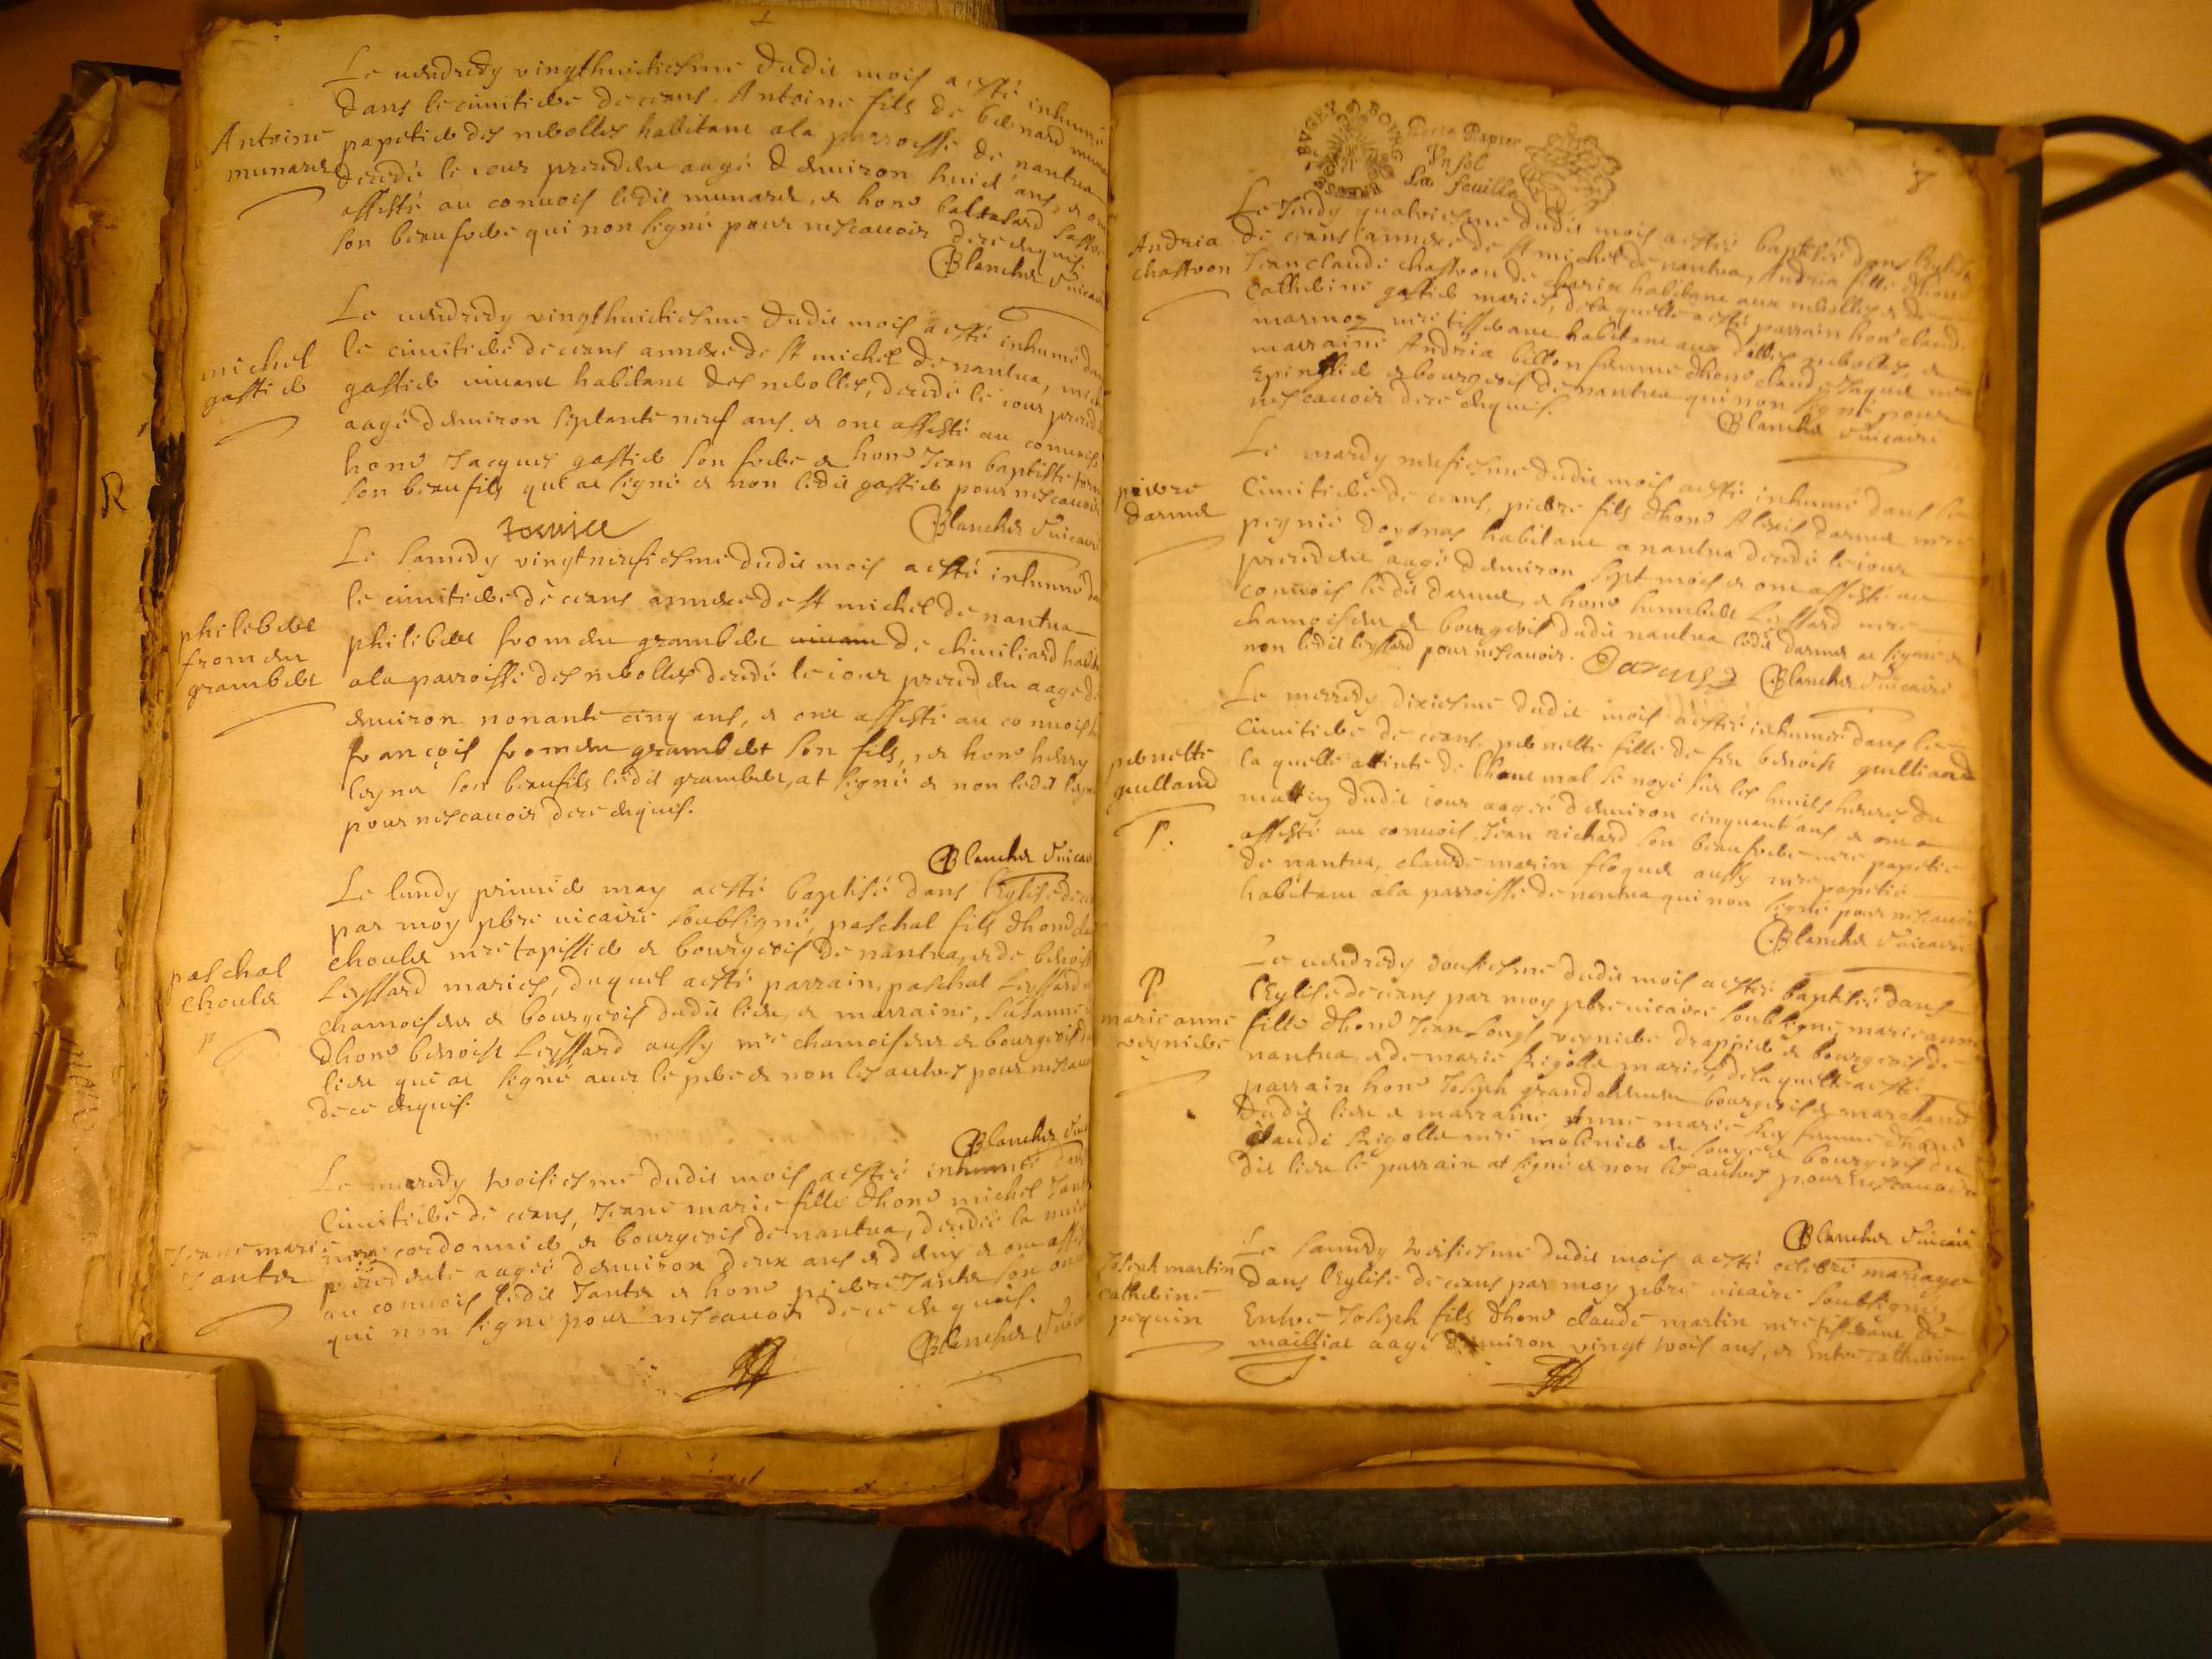 Le vendredy vingthuictiesme dudit mois a esté inhumé
dans le cimitiere de ceans Antoine fils de bernard
papetier des nerolles habitant a la parroisse de nantua
decedé le iour precedent aagé d environ huict ans, et ont
assisté au convois ledit munaret, et hon balthasard
son beaufrere qui non signé pour nescavoir de ce enquis
Blanchet vicaire
Antoine
munaret
Le vendredy vingthuictiesme dudit mois a esté inhumé dans
le cimitiere de ceans annexe de st michel de nantua,
gattier vivant habitant des nerolles, decedé le iour
aagé d environ septante neuf ans. et ont assisté au convois
hono Jacques gattier son frere et hono Jean baptiste
son beaufils qui at signé et non ledit gattier pour nescavoir
Blanchet vicaire
michel
gattier
Le samedy vingtneufiesme dudit mois a esté inhumé
le cimitiere de ceans annexe de st michel de nantua
philibert froment grambert vivant de chiviliard
a la parroisse des nerolles decedé le iour precedent aagé de
environ nonante cinq ans, et ont assisté au convois
françois froment grambert son fils, et hono henry
son beaufils ledit grambert, at signé et non ledit
pour nescavoir de ce enquis.
Blanchet vicaire
philibert
froment
grambert
Le lundy premier may a esté baptisé dans l'Eglise de
par moy pbre vicaire soubsigné, paschal fils d'hono
choulet mre tapissier et bourgeois de nantua, et de benoiste
Leyssard mariés, duquel a esté parrain, paschal Leyssard
chamoiseur et bourgeois dudit lieu, et marraine, susanne
d'hono benoist Leyssard aussy mre chamoiseur et bourgeois
lieu qui at signé avec le pere et non les autres pour
de ce enquis.
Blanchet
paschal
choulet
p
Le mercredy troisiesme dudit mois a esté inhumée dans
cimitiere de ceans, Jeane marie fille d'hono michel
mre cordonnier et bourgeois de nantua, decedée la nuict
precedente aagée d environ deux ans et demy et ont
au convois ledit Jantet et hono pierre Jantet son
qui non signé pour nescavoir de ce enquis.
Blanchet
Jeane marie
Jantet
BVGEY BOVRG
Papier
Un sol
La feuille
Le Jeudy quatriesme dudit mois a esté baptisée dans l'Eglise
de ceans annexe de st michel de nantua, Andria fille d'hono
Jean claude chastron de charix habitant aux nerolles et de
Catherine gattier mariés, de la quelle a esté parrain hon claude
marmoz mre tisserant habitant aux dittes nerolles, et
marraine Andria billon femme d'hono claude Jaquet mre
Epinglier et bourgeois de nantua qui non signé pour
nescavoir de ce enquis.
Blanchet vicaire
Andria
chastron
Le mardy neufiesme dudit mois a esté inhumé dans le
Cimitiere de ceans, pierre fils d'hono Alexis darmet mre
pegnie doyonas habitant a nantua decedé le iour
precedent aagé d environ sept mois et ont assisté au
convois ledit darmet, et hono humbert Leyssard mre
chamoiseur et bourgeois dudit nantua ledit darmet at signé et
non ledit leyssard pour nescavoir. Blanchet vicaire
pierre
darmet
Le mercredy dixiesme dudit mois a esté inhumée dans le
Cimitiere de ceans, pernette fille de feu benoist guilliand
la quelle attinte de l'haut mal se noye sur les huits heures du
mattin dudit iour aagée d environ cinquant'ans et ont
assisté au convois, Jean richard son beaufrere mre papetie
de nantua, claude marin floquet aussy mre papetie
habitant a la parroisse de nantua qui non signé pour nescavoir
Blanchet vicaire
pernette
guilland
P.
Le vendredy douziesme dudit mois a esté baptisée dans
l'Eglise de ceans par moy pbre vicaire soubsigné, marie anne
fille d'hono Jean Louys vernier drappier et bourgeois de
nantua et de marie Rigollet mariés, de la quelle a esté
parrain hono Joseph grand clement bourgeois et marchand
dudit lieu et marraine, Anne marie femme d'hono
claude Rigollet mre molinier en soye et bourgeois du
dit lieu le parrain at signé et non les autres pour nescavoir
Blanchet vicaire
P
marie anne
Le samedy treisiesme dudit mois a esté celebré mariage
dans l'Eglise de ceans par moy pbre vicaire soubsigné
Entre Joseph fils d'hono claude martin mre tisserant de
mailliat aagé d environ vingt trois ans, et Entre catherine
Joseph martin
catherine
pequin